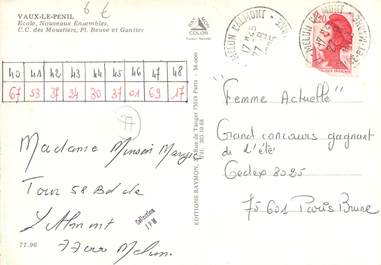 6 €
VAUX-LE-PENIL
Ecole, Nouveaux Ensembles,
C.C. des Moustiers, Pl. Beuve et Gantier
COLOR
40 41 42 43 44 45 46 47 48
67 53 37 24 30 37 01 69 17
Madame
Tour 58 Bd de
L'Almont
77000 Melun
77.96
EDITIONS RAYMON
75019 Paris
2,20
"Femme Actuelle"
Grand concours gagnant
de l'été
Cedex 8025
75601 Paris Brune